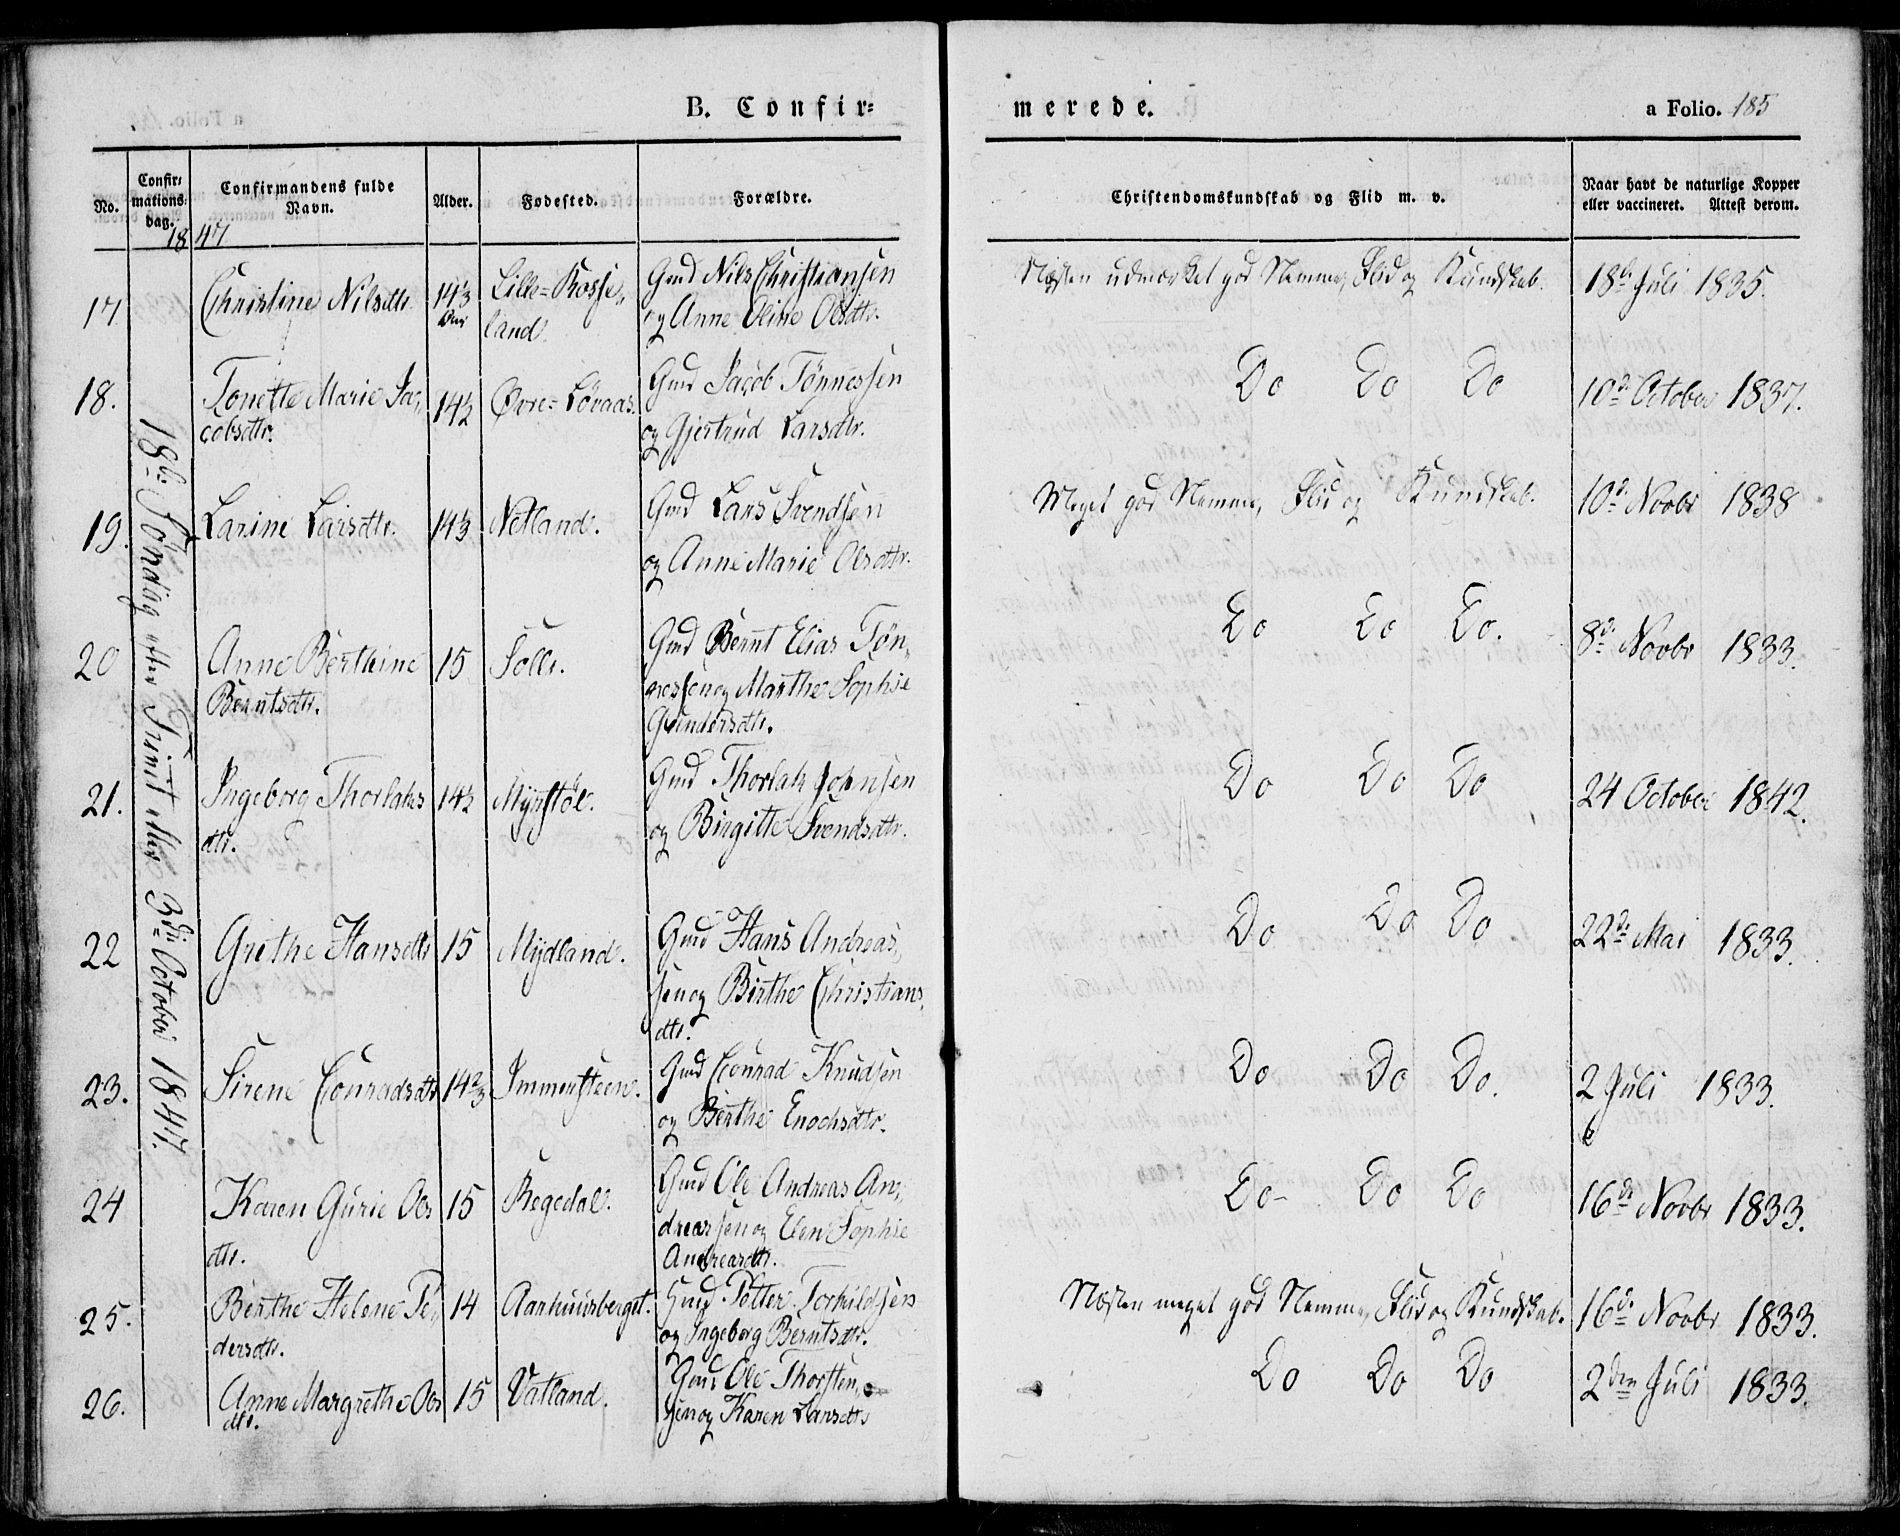 B. Confir=
merede.
a Folio. 185
No.
Confir=
mations=
dag.
Confirmandens fulde
Navn.
Alder.
Fødested.
Forældre.
Christendomskundskab og Flid m. v.
Naar havt de naturlige Kopper
eller vaccineret. Attest derom.
1847
18de Søndag efter Trinit eller 3die October 1847.
17.
Christine Nilsdtr.
14⅓
Lille=Kosse,,
land.
Gmd Nils Christiansen
og Anne Oline Olsdtr.
Næsten udmærket god Nemme, Flid og Kundskab.
18de Juli 1835.
18.
Tonette Marie Ja,,
cobsdtr.
14½
Øvre=Løvaas.
Gmd Jacob Tønnessen
og Gjertrud Larsdtr.
Do Do Do
10de October 1837.
19.
Larine Larsdtr.
14⅓
Netland.
Gmd Lars Svendsen
og Anne Marie Olsdtr.
Meget god Nemme, Flid og Kundskab.
10de Novbr 1838
20
Anne Berthine
Berntsdtr.
15
Solli.
Gmd Bernt Elias Tøn,,
nessen og Marthe Sophie
Gundersdtr.
Do Do Do.
8de Novbr 1833.
21.
Ingeborg Thorlaks
dtr.
14½
Myrstøl.
Gmd Thorlak Johnsen
og Birgitte Svendsdtr.
Do Do Do
24 October 1842.
22
Grethe Hansdtr
15
Mydland.
Gmd Hans Andreas,,
sen og Birthe Christians
dtr.
Do Do Do
22de Mai 1833.
23.
Sirene Conradsdtr
14⅔
Immensteen.
Gmd Conrad Knudsen
og Berthe Enochsdtr.
Do Do Do.
2 Juli 1833.
24
Karen Gurie Ols
dtr.
15
Regedal.
Gmd Ole Andreas An,,
dreassen og Elen Sophie
Andreasdtr.
Do- Do Do
16de Novbr 1833.
25.
Berthe Helene Pe,,
dersdtr.
14
Aarhuusberget.
Hmd Petter Torkildsen
og Ingeborg Berntsdtr.
Næsten meget god Nemme, Flid og Kundskab.
16de Novbr 1833.
26.
Anne Margrethe Ols
dtr.
15
Vatland.
Gmd Ole Thorsten,,
sen og Karen Larsdtr
Do Do Do
2den Juli 1833.